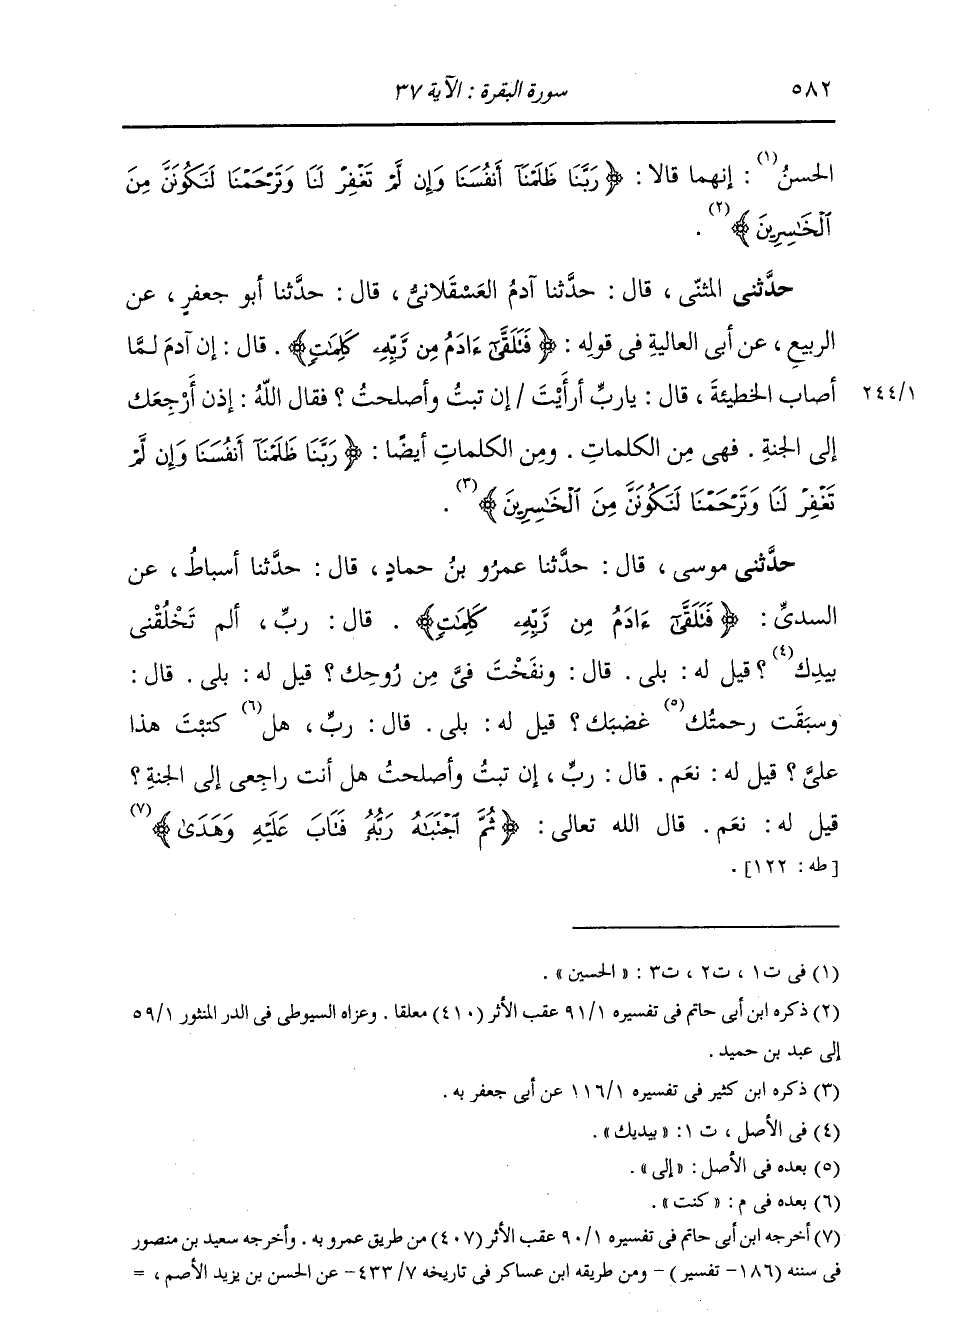 ٥٨٢ سورة البقرة : الآية ٣٧
الحسنُ(١) : إنهما قالا : ﴿ رَبَّنَا ظَلَمْنَآ أَنفُسَنَا وَإِن لَّمْ تَغْفِرْ لَنَا وَتَرْحَمْنَا لَنَكُونَنَّ مِنَ
ٱلْخَٰسِرِينَ ﴾(٢) .
حدَّثني المثنّى ، قال : حدَّثنا آدمُ العَسْقَلانىُّ ، قال : حدَّثنا أبو جعفرٍ ، عن
الربيعِ ، عن أبى العاليةِ فى قولِه : ﴿ فَتَلَقَّىٰٓ ءَادَمُ مِن رَّبِّهِۦ كَلِمَٰتٍ ﴾ . قال : إن آدمَ لـمَّا
أصاب الخطيئةَ ، قال : ياربِّ أرأَيْتَ / إن تبتُ وأصلحتُ ؟ فقال اللَّهُ : إذن أَرْجِعَك ٢٤٤/١
إلى الجنةِ . فهى مِن الكلماتِ . ومِن الكلماتِ أيضًا : ﴿ رَبَّنَا ظَلَمْنَآ أَنفُسَنَا وَإِن لَّمْ
تَغْفِرْ لَنَا وَتَرْحَمْنَا لَنَكُونَنَّ مِنَ ٱلْخَٰسِرِينَ ﴾(٣) .
حدَّثني موسى ، قال : حدَّثنا عمرُو بنُ حمادٍ ، قال : حدَّثنا أسباطُ ، عن
السدىِّ : ﴿ فَتَلَقَّىٰٓ ءَادَمُ مِن رَّبِّهِۦ كَلِمَٰتٍ ﴾ . قال : ربِّ ، ألم تَخْلُقْنى
بيدِك(٤) ؟ قيل له : بلى . قال : ونفَخْتَ فىَّ مِن رُوحِك ؟ قيل له : بلى . قال :
وسبَقَت رحمتُك(٥) غضبَك ؟ قيل له : بلى . قال : ربِّ ، هل(٦) كتبْتَ هذا
علىَّ ؟ قيل له : نعَم . قال : ربِّ ، إن تبتُ وأصلحتُ هل أنت راجعى إلى الجنةِ ؟
قيل له : نعَم . قال الله تعالى : ﴿ ثُمَّ ٱجْتَبَٰهُ رَبُّهُۥ فَتَابَ عَلَيْهِ وَهَدَىٰ ﴾(٧)
[طه : ١٢٢] .
(١) فى ت١ ، ت٢ ، ت٣ : « الحسين » .
(٢) ذكره ابن أبى حاتم فى تفسيره ٩١/١ عقب الأثر (٤١٠) معلقا . وعزاه السيوطى فى الدر المنثور ٥٩/١
إلى عبد بن حميد .
(٣) ذكره ابن كثير فى تفسيره ١١٦/١ عن أبى جعفر به .
(٤) فى الأصل ، ت ١ : « بيديك » .
(٥) بعده فى الأصل : « إلى » .
(٦) بعده فى م : « كنت » .
(٧) أخرجه ابن أبى حاتم فى تفسيره ٩٠/١ عقب الأثر (٤٠٧) من طريق عمرو به . وأخرجه سعيد بن منصور
فى سننه (١٨٦- تفسير ) – ومن طريقه ابن عساكر فى تاريخه ٤٣٣/٧ – عن الحسن بن يزيد الأصم ، =